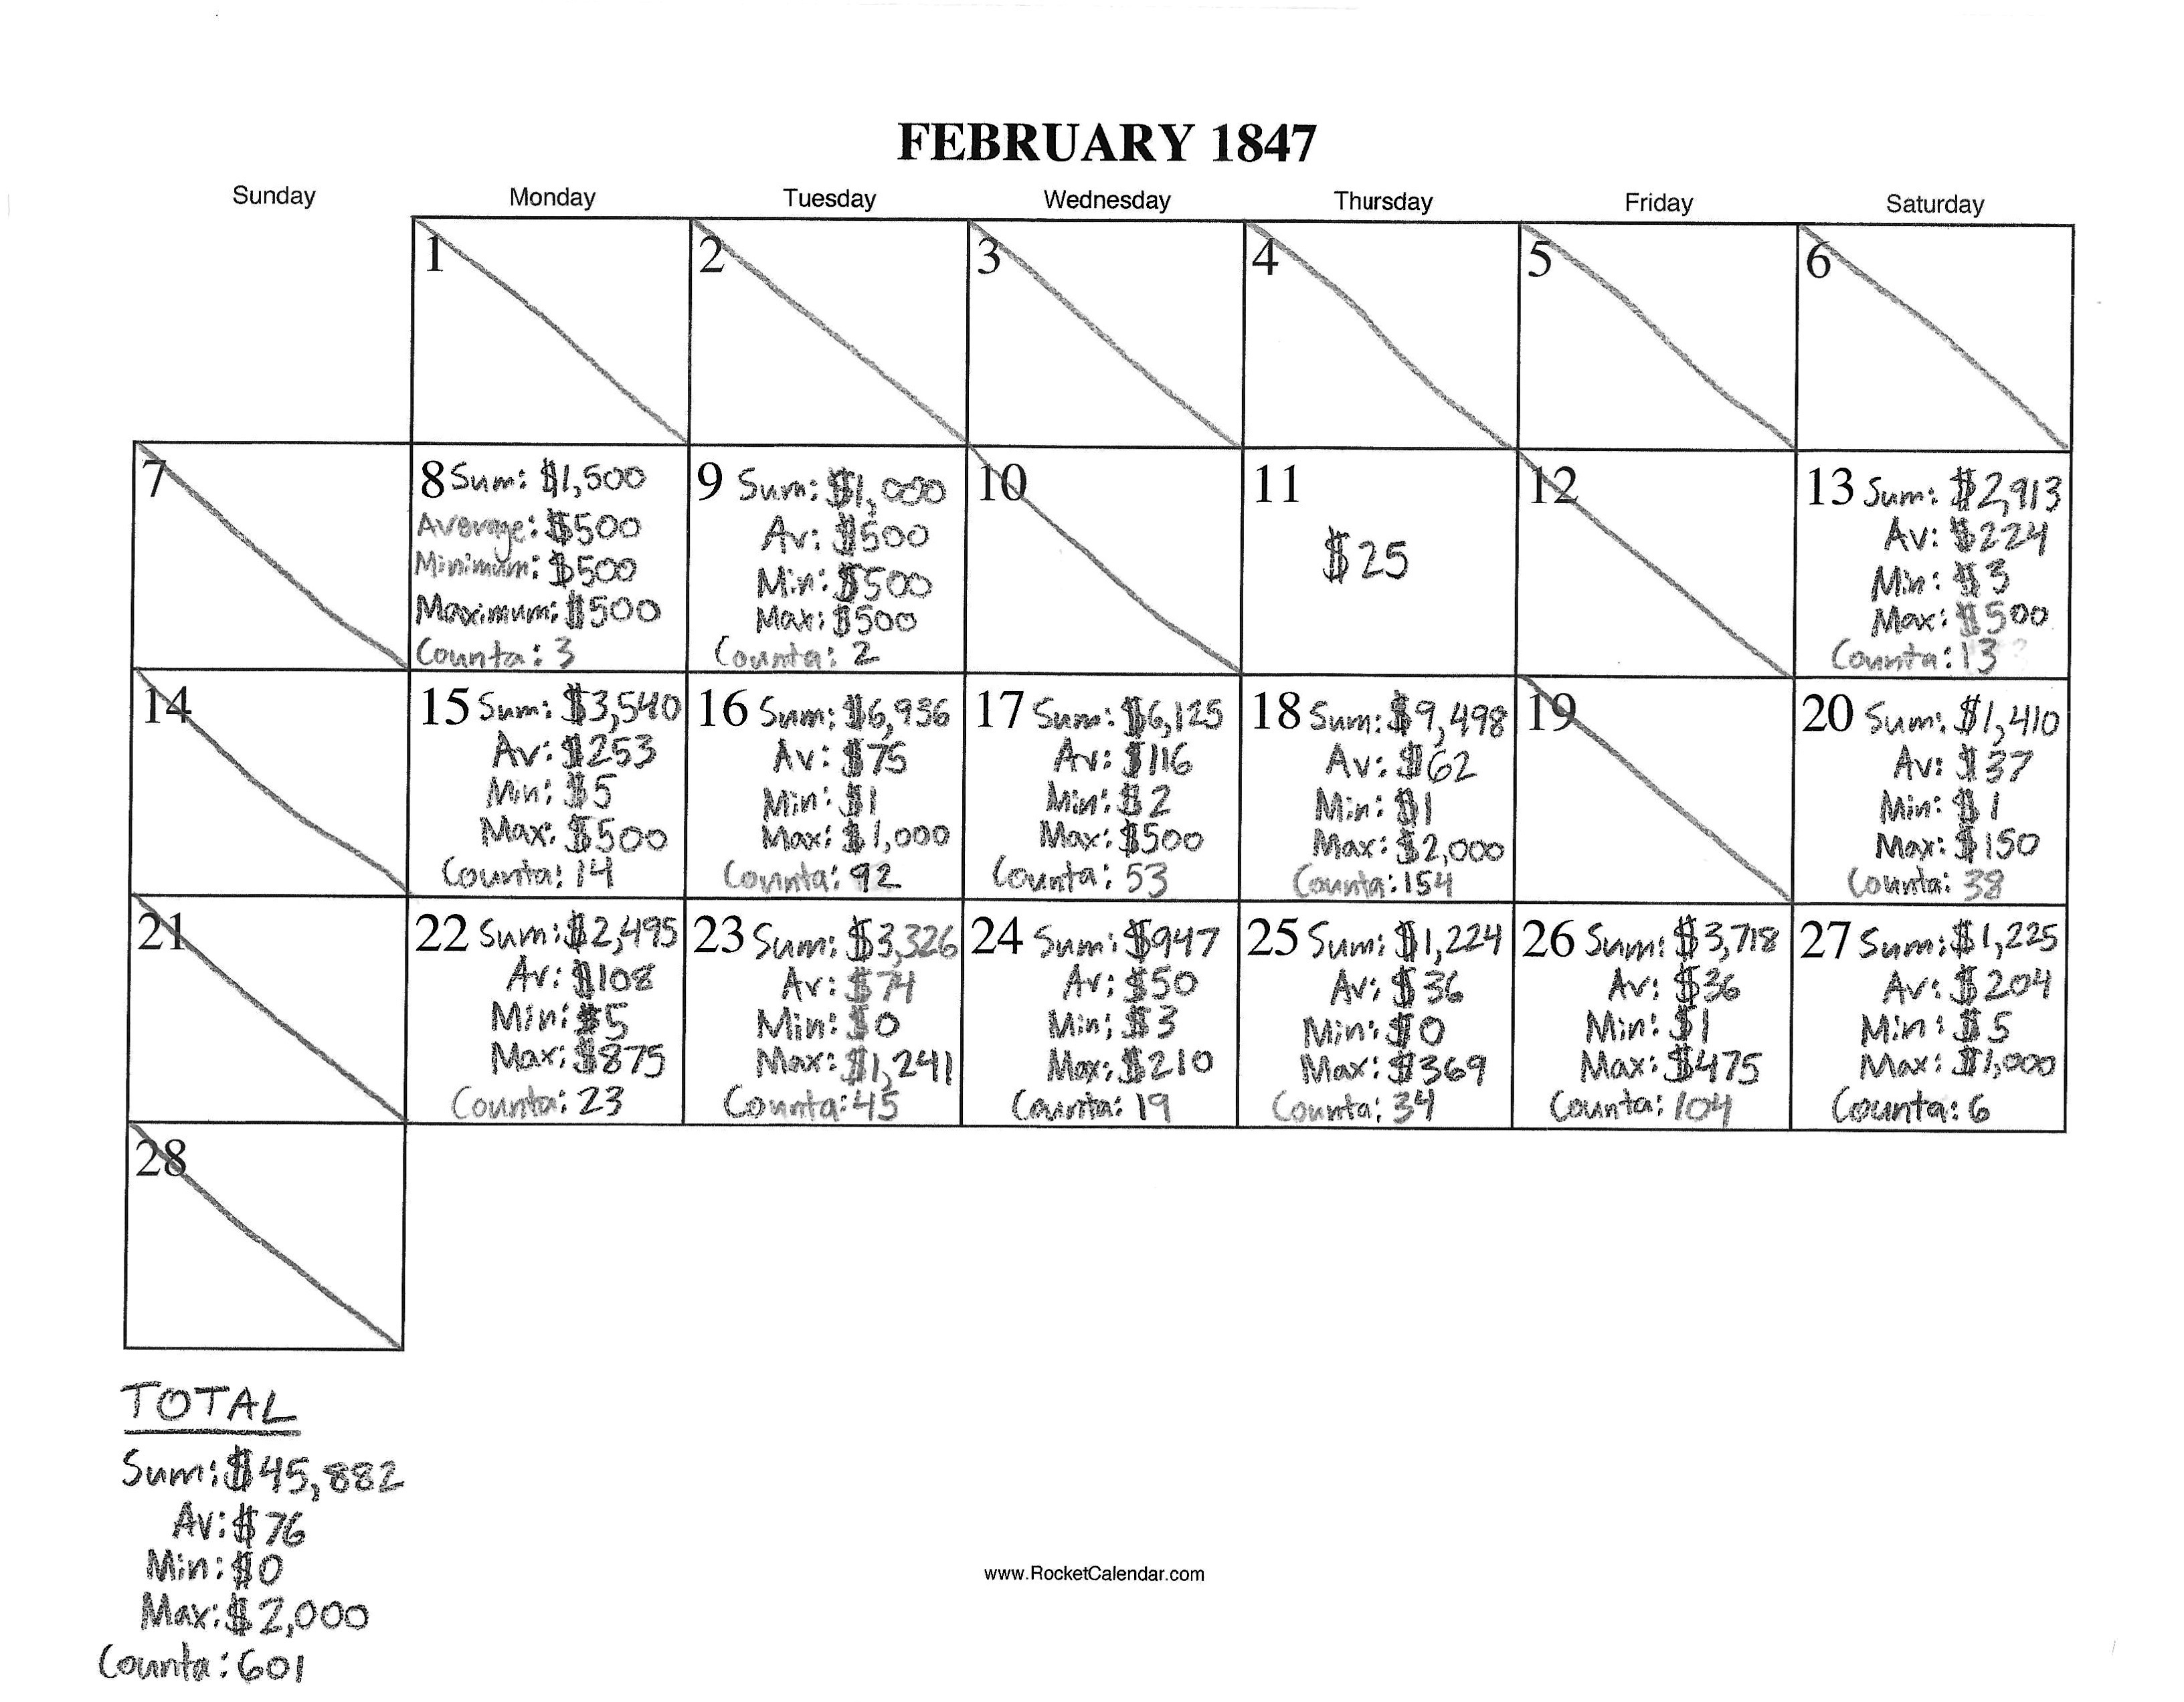 FEBRUARY 1847
Sunday Monday Tuesday Wednesday Thursday Friday Saturday
1
2
3
4
5
6
7
8 Sum: $1,500
Average: $500
Minimum: $500
Maximum: $500
Counta: 3
9 Sum: $1,000
Av: $500
Min: $500
Max: $500
Counta: 2
10
11
$25
12
13 Sum: $2,913
Av: $224
Min: $3
Max: $500
Counta: 13
14
15 Sum: $3,540
Av: $253
Min: $5
Max: $500
Counta: 14
16 Sum: $6,936
Av: $75
Min: $1
Max: $1,000
Counta: 92
17 Sum: $6,125
Av: $116
Min: $2
Max: $500
Counta: 53
18 Sum: $9,498
Av: $62
Min: $1
Max: $2,000
Counta: 154
19
20 Sum: $1,410
Av: $37
Min: $1
Max: $150
Counta: 38
21
22 Sum: $2,495
Av: $108
Min: $5
Max: $875
Counta: 23
23 Sum: $3,326
Av: $74
Min: $0
Max: $1,241
Counta: 45
24 Sum: $947
Av: $50
Min: $3
Max: $210
Counta: 19
25 Sum: $1,224
Av: $36
Min: $0
Max: $369
Counta: 34
26 Sum: $3,718
Av: $36
Min: $1
Max: $475
Counta: 104
27 Sum: $1,225
Av: $204
Min: $5
Max: $1,000
Counta: 6
28
TOTAL
Sum: $45,882
Av: $76
Min: $0
Max: $2,000
Counta: 601
www.RocketCalendar.com